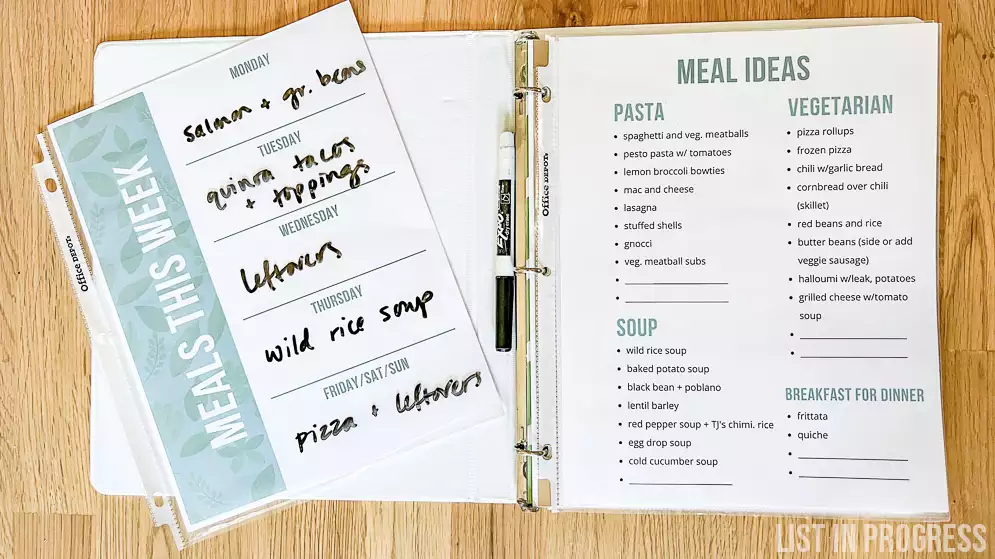 MEALS THIS WEEK
MONDAY
salmon + gr. beans
TUESDAY
quinoa tacos
+ toppings
WEDNESDAY
leftovers
THURSDAY
wild rice soup
FRIDAY/SAT/SUN
pizza + leftovers
Office DEPOT.
EXPO
Office DEPOT.
MEAL IDEAS
PASTA
spaghetti and veg. meatballs
pesto pasta w/ tomatoes
lemon broccoli bowties
mac and cheese
lasagna
stuffed shells
gnocci
veg. meatball subs
SOUP
wild rice soup
baked potato soup
black bean + poblano
lentil barley
red pepper soup + TJ's chimi. rice
egg drop soup
cold cucumber soup
VEGETARIAN
pizza rollups
frozen pizza
chili w/garlic bread
cornbread over chili
(skillet)
red beans and rice
butter beans (side or add
veggie sausage)
halloumi w/leak, potatoes
grilled cheese w/tomato
soup
BREAKFAST FOR DINNER
frittata
quiche
LIST IN PROGRESS